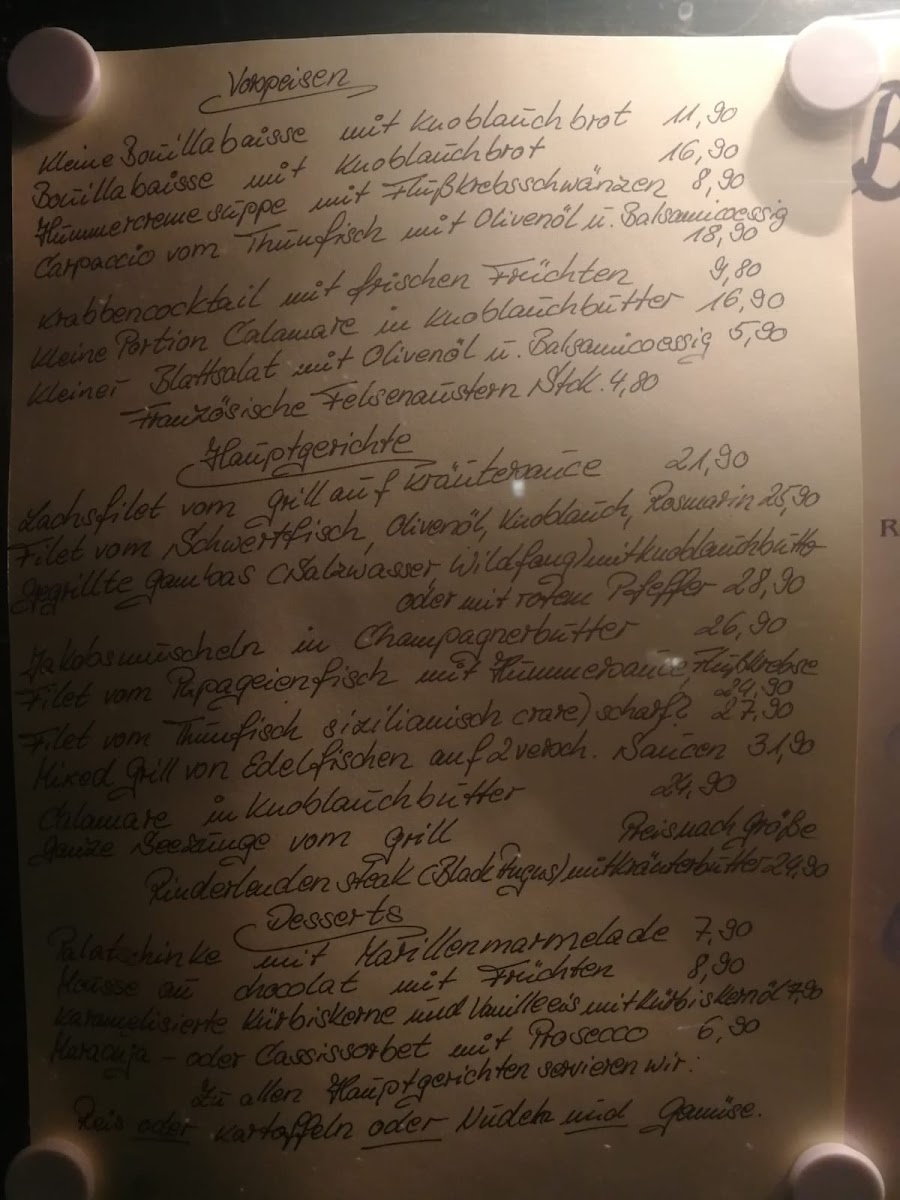 Vorspeisen
Kleine Bouillabaisse mit Knoblauchbrot 11,90
Bouillabaisse mit Knoblauchbrot 16,90
Hummercremesuppe mit Flußkrebsschwänzen 8,90
Carpaccio vom Thunfisch mit Olivenöl u. Balsamicoessig
18,90
Krabbencocktail mit frischen Früchten 9,80
Kleine Portion Calamare in Knoblauchbutter 16,90
Kleiner Blattsalat mit Olivenöl u. Balsamicoessig 5,90
Französische Felsenaustern Stck. 4,80
Hauptgerichte
Lachsfilet vom Grill auf Kräutersauce 21,90
Filet vom Schwertfisch, Olivenöl, Knoblauch, Rosmarin 25,90
Gegrillte Gambas (Salzwasser, Wildfang) mit Knoblauchbutter
oder mit rotem Pfeffer 28,90
Jakobsmuscheln in Champagnerbutter 26,90
Filet vom Papageienfisch mit Hummersauce, Flußkrebse
24,90
Filet vom Thunfisch sizilianisch (rare) scharf? 27,90
Mixed Grill von Edelfischen auf 2 versch. Saucen 31,90
Calamare in Knoblauchbutter 24,90
Ganze Seezunge vom Grill Preis nach Größe
Rinderlendensteak (Black Angus) mit Kräuterbutter 24,90
Desserts
Palatschinke mit Marillenmarmelade 7,90
Mousse au chocolat mit Früchten 8,90
Karamelisierte Kürbiskerne und Vanilleeis mit Kürbiskernöl 7,90
Maracuja- oder Cassissorbet mit Prosecco 6,90
Zu allen Hauptgerichten servieren wir:
Reis oder Kartoffeln oder Nudeln und Gemüse.